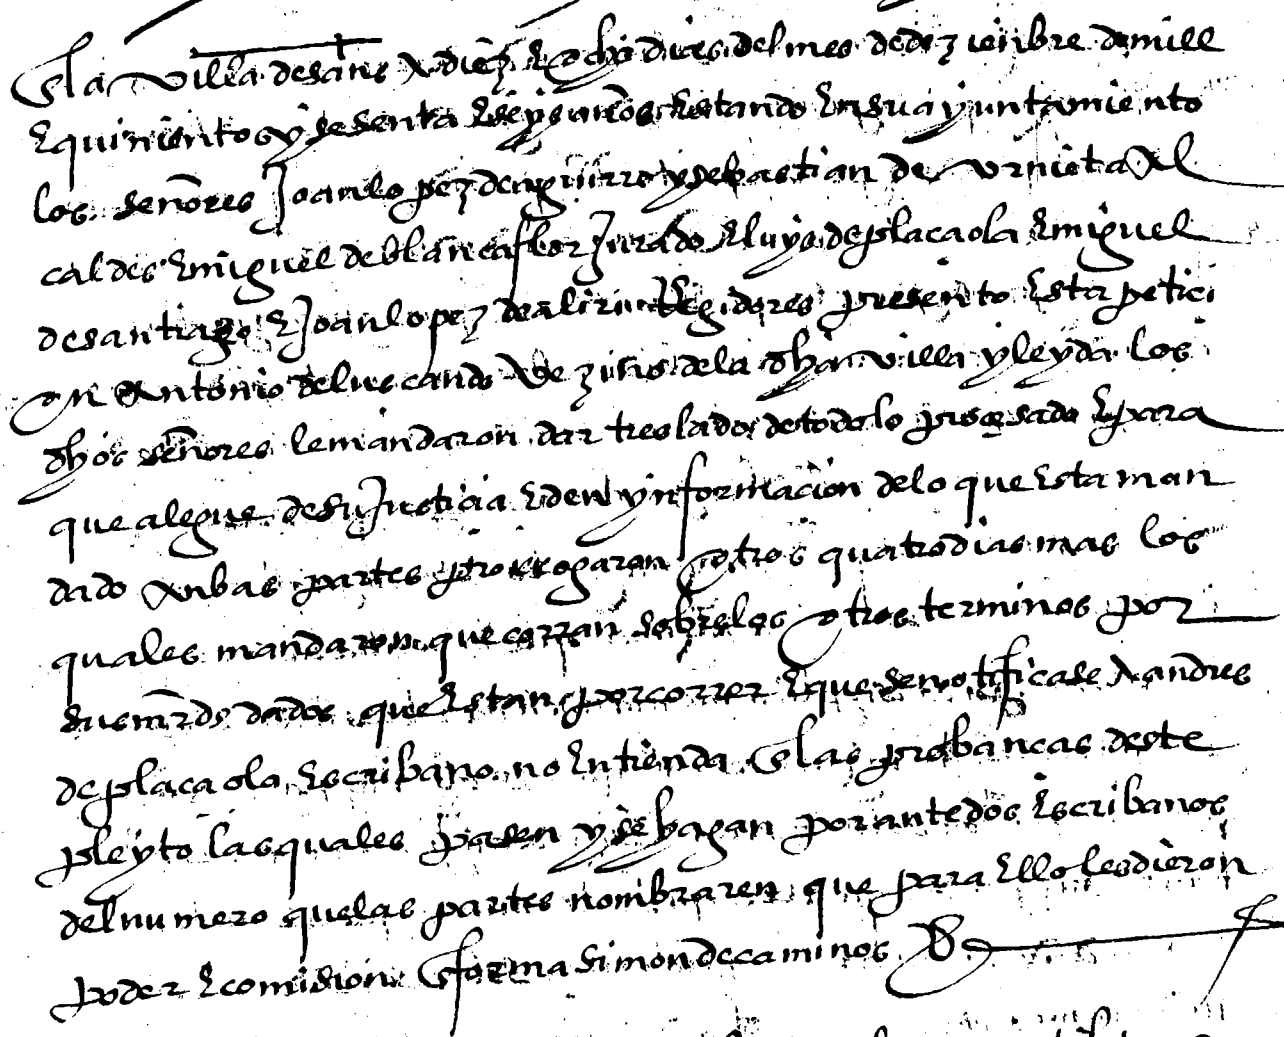 En la villa de sans a diez e ocho dias del mes de dezienbre de mill
e quinientos y sesenta e seys años estando en su ayuntamiento
los señores Joan lopez de aguirre y sebastian de urnieta al
caldes e miguel de blancaflor Jurado e luys de plaçaola e miguel
de santiago e Joan lopez de aliri Regidores presento esta petici
on antonio de luscando vezino de la dha villa y leyda los
dhos señores le mandaron dar treslado de todo lo proçesado e para
que alegue de su Justicia e den ynformacion de lo que esta man
dado anbas partes prorrogaron otros quatro dias mas los
quales mandaron que corran sobre los otros terminos por
sus mrds dados que estan por correr e que se notificase a andres
de plaçaola escribano no entienda en las probanças deste
pleyto las quales pasen y se hagan por ante dos escribanos
del numero que las partes nombraren que para ello les dieron
poder e comision en forma simon de caminos